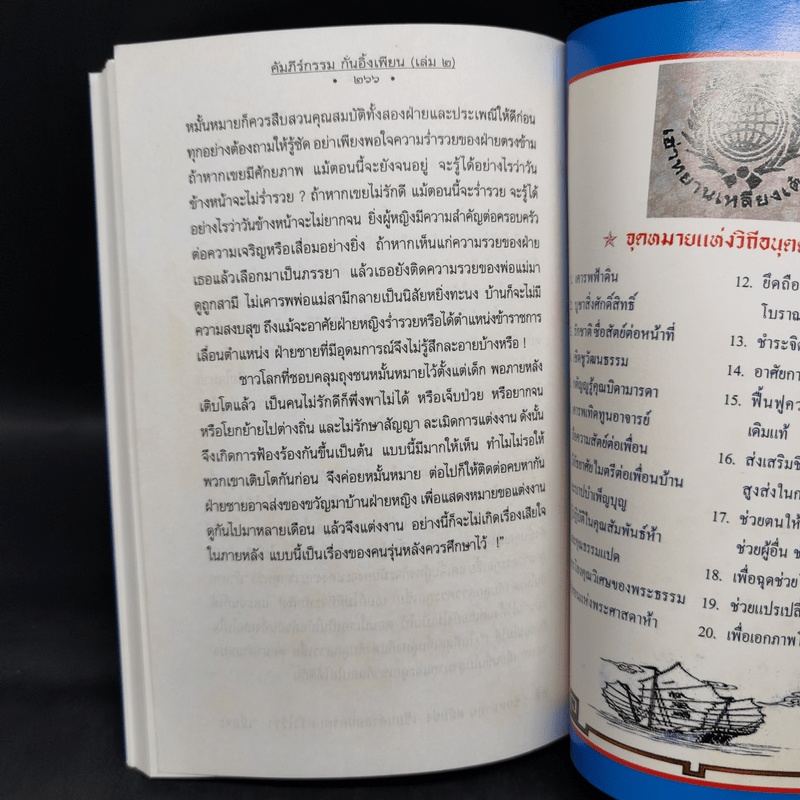 คัมภีร์กรรม กั่นอิ้งเพียน (เล่ม ๒)
• ๒๖๖ •
หมั้นหมายก็ควรสืบสวนคุณสมบัติทั้งสองฝ่ายและประเพณีให้ดีก่อน
ทุกอย่างต้องถามให้รู้ชัด อย่าเพียงพอใจความร่ำรวยของฝ่ายตรงข้าม
ถ้าหากเขยมีศักยภาพ แม้ตอนนี้จะยังจนอยู่ จะรู้ได้อย่างไรว่าวัน
ข้างหน้าจะไม่ร่ำรวย ? ถ้าหากเขยไม่รักดี แม้ตอนนี้จะร่ำรวย จะรู้ได้
อย่างไรว่าวันข้างหน้าจะไม่ยากจน ยิ่งผู้หญิงมีความสำคัญต่อครอบครัว
ต่อความเจริญหรือเสื่อมอย่างยิ่ง ถ้าหากเห็นแก่ความรวยของฝ่าย
เธอแล้วเลือกมาเป็นภรรยา แล้วเธอยังติดความรวยของพ่อแม่มา
ดูถูกสามี ไม่เคารพพ่อแม่สามีกลายเป็นนิสัยหยิ่งทะนง บ้านก็จะไม่มี
ความสงบสุข ถึงแม้จะอาศัยฝ่ายหญิงร่ำรวยหรือได้ตำแหน่งข้าราชการ
เลื่อนตำแหน่ง ฝ่ายชายที่มีอุดมการณ์จึงไม่รู้สึกละอายบ้างหรือ !
ชาวโลกที่ชอบคลุมถุงชนหมั้นหมายไว้ตั้งแต่เด็ก พอภายหลัง
เติบโตแล้ว เป็นคนไม่รักดีก็พึ่งพาไม่ได้ หรือเจ็บป่วย หรือยากจน
หรือโยกย้ายไปต่างถิ่น และไม่รักษาสัญญา ละเมิดการแต่งงาน ดังนั้น
จึงเกิดการฟ้องร้องกันขึ้นเป็นต้น แบบนี้มีมากให้เห็น ทำไมไม่รอให้
พวกเขาเติบโตกันก่อน จึงค่อยหมั้นหมาย ต่อไปก็ให้ติดต่อคบหากัน
ฝ่ายชายอาจส่งของขวัญมาบ้านฝ่ายหญิง เพื่อแสดงหมายขอแต่งงาน
ดูกันไปมาหลายเดือน แล้วจึงแต่งงาน อย่างนี้ก็จะไม่เกิดเรื่องเสียใจ
ในภายหลัง แบบนี้เป็นเรื่องของคนรุ่นหลังควรศึกษาไว้ !"
จุดหมายแห่งวิถีอนุตต
1. เคารพฟ้าดิน
2. บูชาสิ่งศักดิ์สิทธิ์
รักชาติ ซื่อสัตย์ต่อหน้าที่
เชิดชูวัฒนธรรม
กตัญญูรู้คุณบิดามารดา
เคารพเทิดทูนอาจารย์
ความสัตย์ต่อเพื่อน
อาศัยไมตรีต่อเพื่อนบ้าน
บาปบำเพ็ญบุญ
ปฏิบัติในคุณสัมพันธ์ห้า
คุณธรรมแปด
คุณวิเศษของพระธรรม
แห่งพระศาสดาห้า
12. ยึดถือ
โบราณ
13. ชำระจิต
14. อาศัยกา
15. ฟื้นฟูคว
เดิมแท้
16. ส่งเสริมชี
สูงส่งในก
17. ช่วยตนให้
ช่วยผู้อื่น
18. เพื่อฉุดช่วย
19. ช่วยแปรเปลี
20. เพื่อเอกภาพ